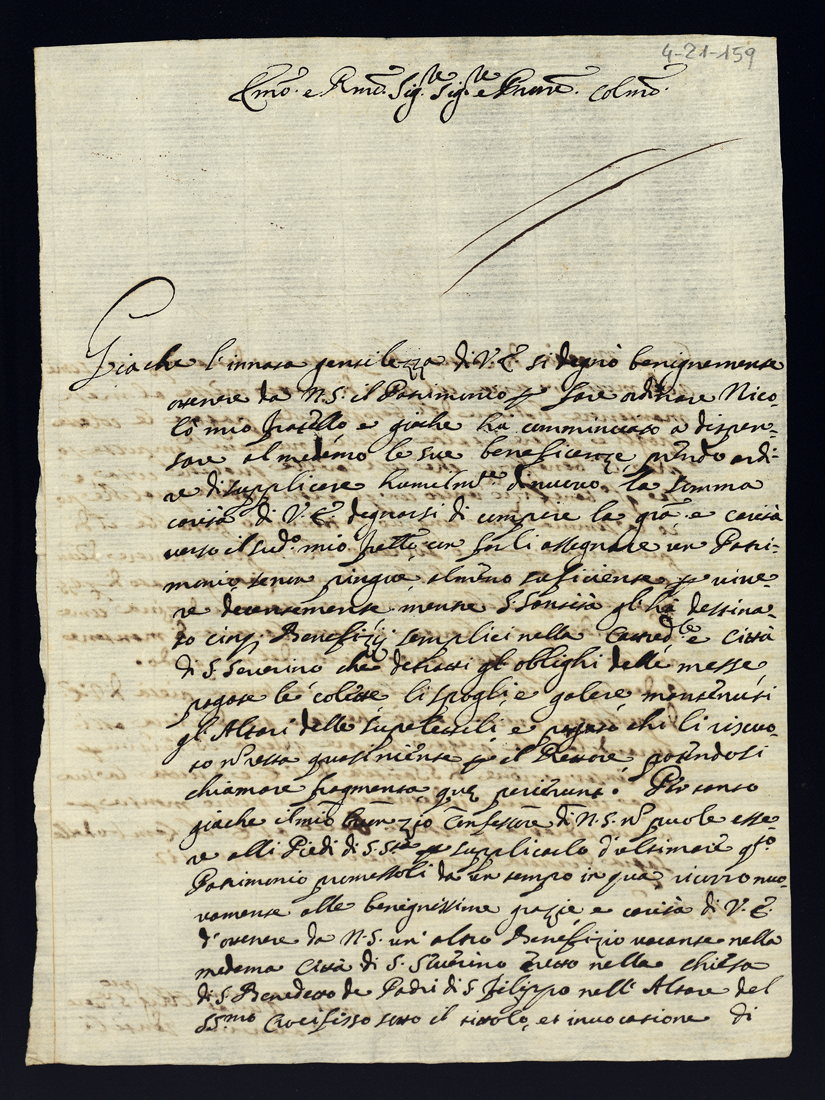 4-21-159
Emo. e Rmo. Sigre. Sigre. e Pnone. Colmo.
Giache l'innata gentilezza di V. E. si degnò benignemente
ottenere da N. S. il Patrimonio p fare ordinare Nico-
lò mio fratello e giache ha cumminciato a dispen-
sare al medémo le sue beneficenze, prendo ardi-
re di supplicare humilmte. di nuovo la somma
carità di V. E. degnarsi di compire la gra. e carità
verso il sudo. mio fratto. con farli assegnare un Patri-
monio senza pingue, almeno suficiente p vive-
re decentemente mentre S. Santità gli ha destina-
to cinq; Benefizij semplici nella Cattedle e Città
di S. Severino che detratti gli oblighi delle messe
pagate le colette li spogli, e galere mantenuti
gl'Altari delle supeletili, e pagato chi li riscuo-
te n resta quasi niente p il Rettore potendosi
chiamare fragmenta que perierunt. Pertanto
giache il mio buon zio Confessore di N. S. n puole esse-
re alli Piedi di S. Sta p supplicarlo d'ultimare qto.
Patrimonio promessoli da un tempo in qua ricorro nuo-
vamente alle benignissime grazie e carità di V. E.
d'ottenere da N. S. un' altro Benefizio vacante nella
medema Città di S. Severino eretto nella chiesa
di S. Benedetto de Padri di S. Filippo nell'Altare del
SSmo Crocifisso sotto il titolo, et invocatione di